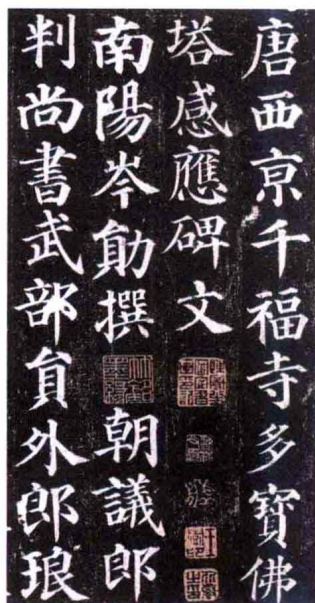 唐西京千福寺多寶佛
塔感應碑文
南陽岑勛撰 朝議郎
判尚書武部員外郎琅